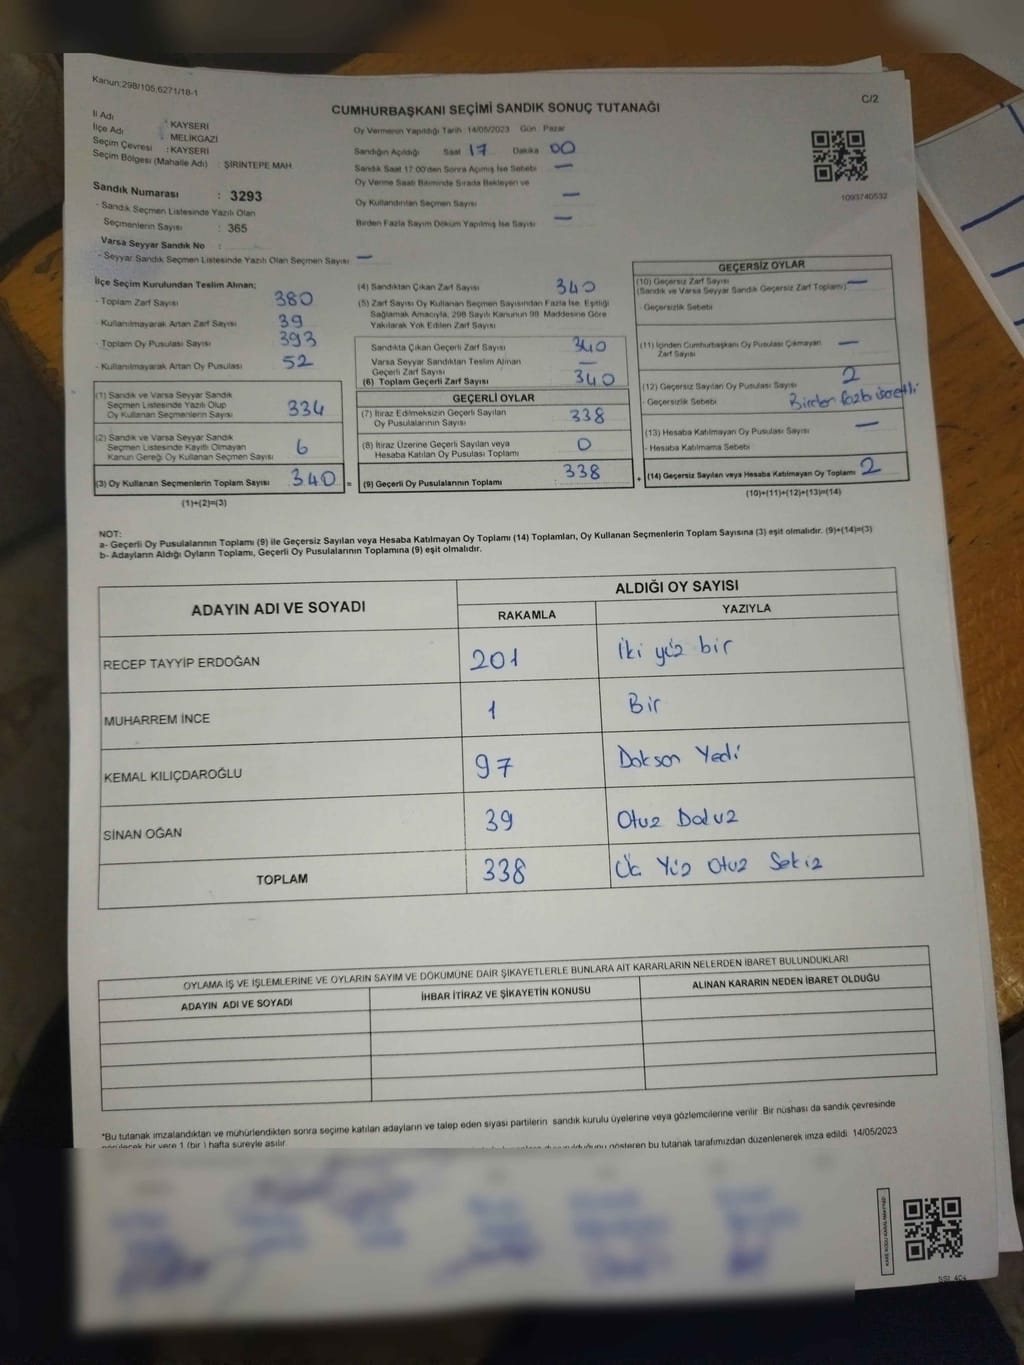 Kanun:298/105,6271/18-1
C/2
CUMHURBAŞKANI SEÇİMİ SANDIK SONUÇ TUTANAĞI
İl Adı : KAYSERİ
İlçe Adı : MELİKGAZİ
Seçim Çevresi : KAYSERİ
Seçim Bölgesi (Mahalle Adı) : ŞİRİNTEPE MAH.
Sandık Numarası : 3293
- Sandık Seçmen Listesinde Yazılı Olan
Seçmenlerin Sayısı : 365
Varsa Seyyar Sandık No :
- Seyyar Sandık Seçmen Listesinde Yazılı Olan Seçmen Sayısı —
Oy Vermenin Yapıldığı Tarih 14/05/2023 Gün : Pazar
Sandığın Açıldığı Saat 17 Dakika 00
Sandık Saat 17.00'den Sonra Açımış İse Sebebi —
Oy Verme Saati Bitiminde Sırada Bekleyen ve
Oy Kullandırılan Seçmen Sayısı —
Birden Fazla Sayım Döküm Yapılmış İse Sayısı —
1093740532
İlçe Seçim Kurulundan Teslim Alınan;
- Toplam Zarf Sayısı 380
- Kullanılmayarak Artan Zarf Sayısı 39
- Toplam Oy Pusulası Sayısı 393
- Kullanılmayarak Artan Oy Pusulası 52
(1) Sandık ve Varsa Seyyar Sandık
Seçmen Listesinde Yazılı Olup
Oy Kullanan Seçmenlerin Sayısı 334
(2) Sandık ve Varsa Seyyar Sandık
Seçmen Listesinde Kayıtlı Olmayan
Kanun Gereği Oy Kullanan Seçmen Sayısı 6
(3) Oy Kullanan Seçmenlerin Toplam Sayısı 340 =
(1)+(2)=(3)
(4) Sandıktan Çıkan Zarf Sayısı 340
(5) Zarf Sayısı Oy Kullanan Seçmen Sayısından Fazla İse, Eşitliği
Sağlamak Amacıyla, 298 Sayılı Kanunun 98. Maddesine Göre
Yakılarak Yok Edilen Zarf Sayısı
Sandıkta Çıkan Geçerli Zarf Sayısı 340
Varsa Seyyar Sandıktan Teslim Alınan
Geçerli Zarf Sayısı —
(6) Toplam Geçerli Zarf Sayısı 340
GEÇERLİ OYLAR
(7) İtiraz Edilmeksizin Geçerli Sayılan
Oy Pusulalarının Sayısı 338
(8) İtiraz Üzerine Geçerli Sayılan veya
Hesaba Katılan Oy Pusulası Toplamı 0
(9) Geçerli Oy Pusulalarının Toplamı 338 +
GEÇERSİZ OYLAR
(10) Geçersiz Zarf Sayısı
(Sandık ve Varsa Seyyar Sandık Geçersiz Zarf Toplamı) —
- Geçersizlik Sebebi
(11) İçinden Cumhurbaşkanı Oy Pusulası Çıkmayan
Zarf Sayısı —
(12) Geçersiz Sayılan Oy Pusulası Sayısı 2
- Geçersizlik Sebebi Birden fazla işaretli
(13) Hesaba Katılmayan Oy Pusulası Sayısı —
- Hesaba Katılmama Sebebi
(14) Geçersiz Sayılan veya Hesaba Katılmayan Oy Toplamı 2
(10)+(11)+(12)+(13)=(14)
NOT:
a- Geçerli Oy Pusulalarının Toplamı (9) ile Geçersiz Sayılan veya Hesaba Katılmayan Oy Toplamı (14) Toplamları, Oy Kullanan Seçmenlerin Toplam Sayısına (3) eşit olmalıdır. (9)+(14)=(3)
b- Adayların Aldığı Oyların Toplamı, Geçerli Oy Pusulalarının Toplamına (9) eşit olmalıdır.
ADAYIN ADI VE SOYADI
ALDIĞI OY SAYISI
RAKAMLA YAZIYLA
RECEP TAYYİP ERDOĞAN 201 İki yüz bir
MUHARREM İNCE 1 Bir
KEMAL KILIÇDAROĞLU 97 Doksan Yedi
SİNAN OĞAN 39 Otuz Dokuz
TOPLAM 338 Üç Yüz Otuz Sekiz
OYLAMA İŞ VE İŞLEMLERİNE VE OYLARIN SAYIM VE DÖKÜMÜNE DAİR ŞİKAYETLERLE BUNLARA AİT KARARLARIN NELERDEN İBARET BULUNDUKLARI
ADAYIN ADI VE SOYADI İHBAR İTİRAZ VE ŞİKAYETİN KONUSU ALINAN KARARIN NEDEN İBARET OLDUĞU
*Bu tutanak imzalandıktan ve mühürlendikten sonra seçime katılan adayların ve talep eden siyasi partilerin sandık kurulu üyelerine veya gözlemcilerine verilir. Bir nüshası da sandık çevresinde
görülecek bir yere 1 (bir) hafta süreyle asılır. gösteren bu tutanak tarafımızdan düzenlenerek imza edildi. 14/05/2023